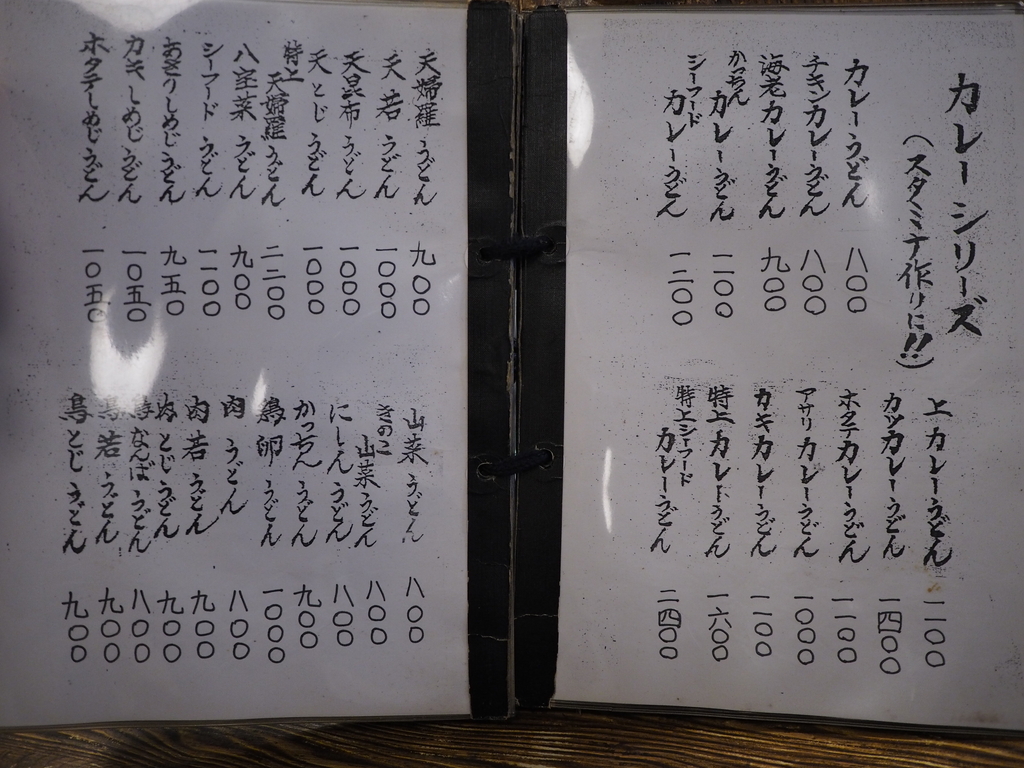 カレーシリーズ
(スタミナ作りに!!)
カレーうどん 八〇〇
チキンカレーうどん 八〇〇
海老カレーうどん 九〇〇
かっちん カレーうどん 一一〇〇
シーフード カレーうどん 一二〇〇
上カレーうどん 一一〇〇
カツカレーうどん 一四〇〇
ホタテカレーうどん 一一〇〇
アサリカレーうどん 一〇〇〇
カキカレーうどん 一一〇〇
特上カレーうどん 一六〇〇
特上シーフード カレーうどん 二四〇〇
天婦羅うどん 九〇〇
天若うどん 一〇〇〇
天昆布うどん 一〇〇〇
天とじうどん 一〇〇〇
特上 天婦羅うどん 二二〇〇
八宝菜うどん 九〇〇
シーフードうどん 一一〇〇
あさりしめじうどん 九五〇
カキしめじうどん 一〇五〇
ホタテしめじうどん 一〇五〇
山菜うどん 八〇〇
きのこ 山菜うどん 八〇〇
にしんうどん 八〇〇
かっちんうどん 九〇〇
鶏卵うどん 一〇〇〇
肉うどん 八〇〇
肉若うどん 九〇〇
肉とじうどん 九〇〇
鳥なんばうどん 八〇〇
鳥若うどん 九〇〇
鳥とじうどん 九〇〇